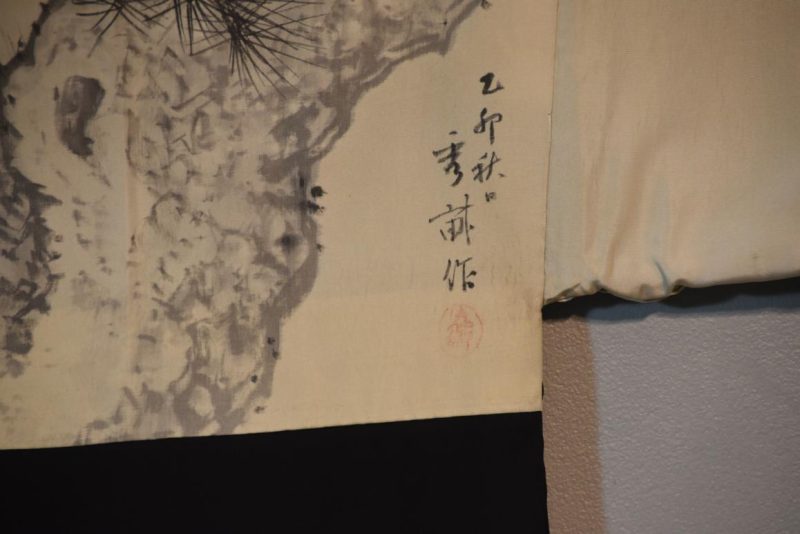 乙卯秋日
秀畝作